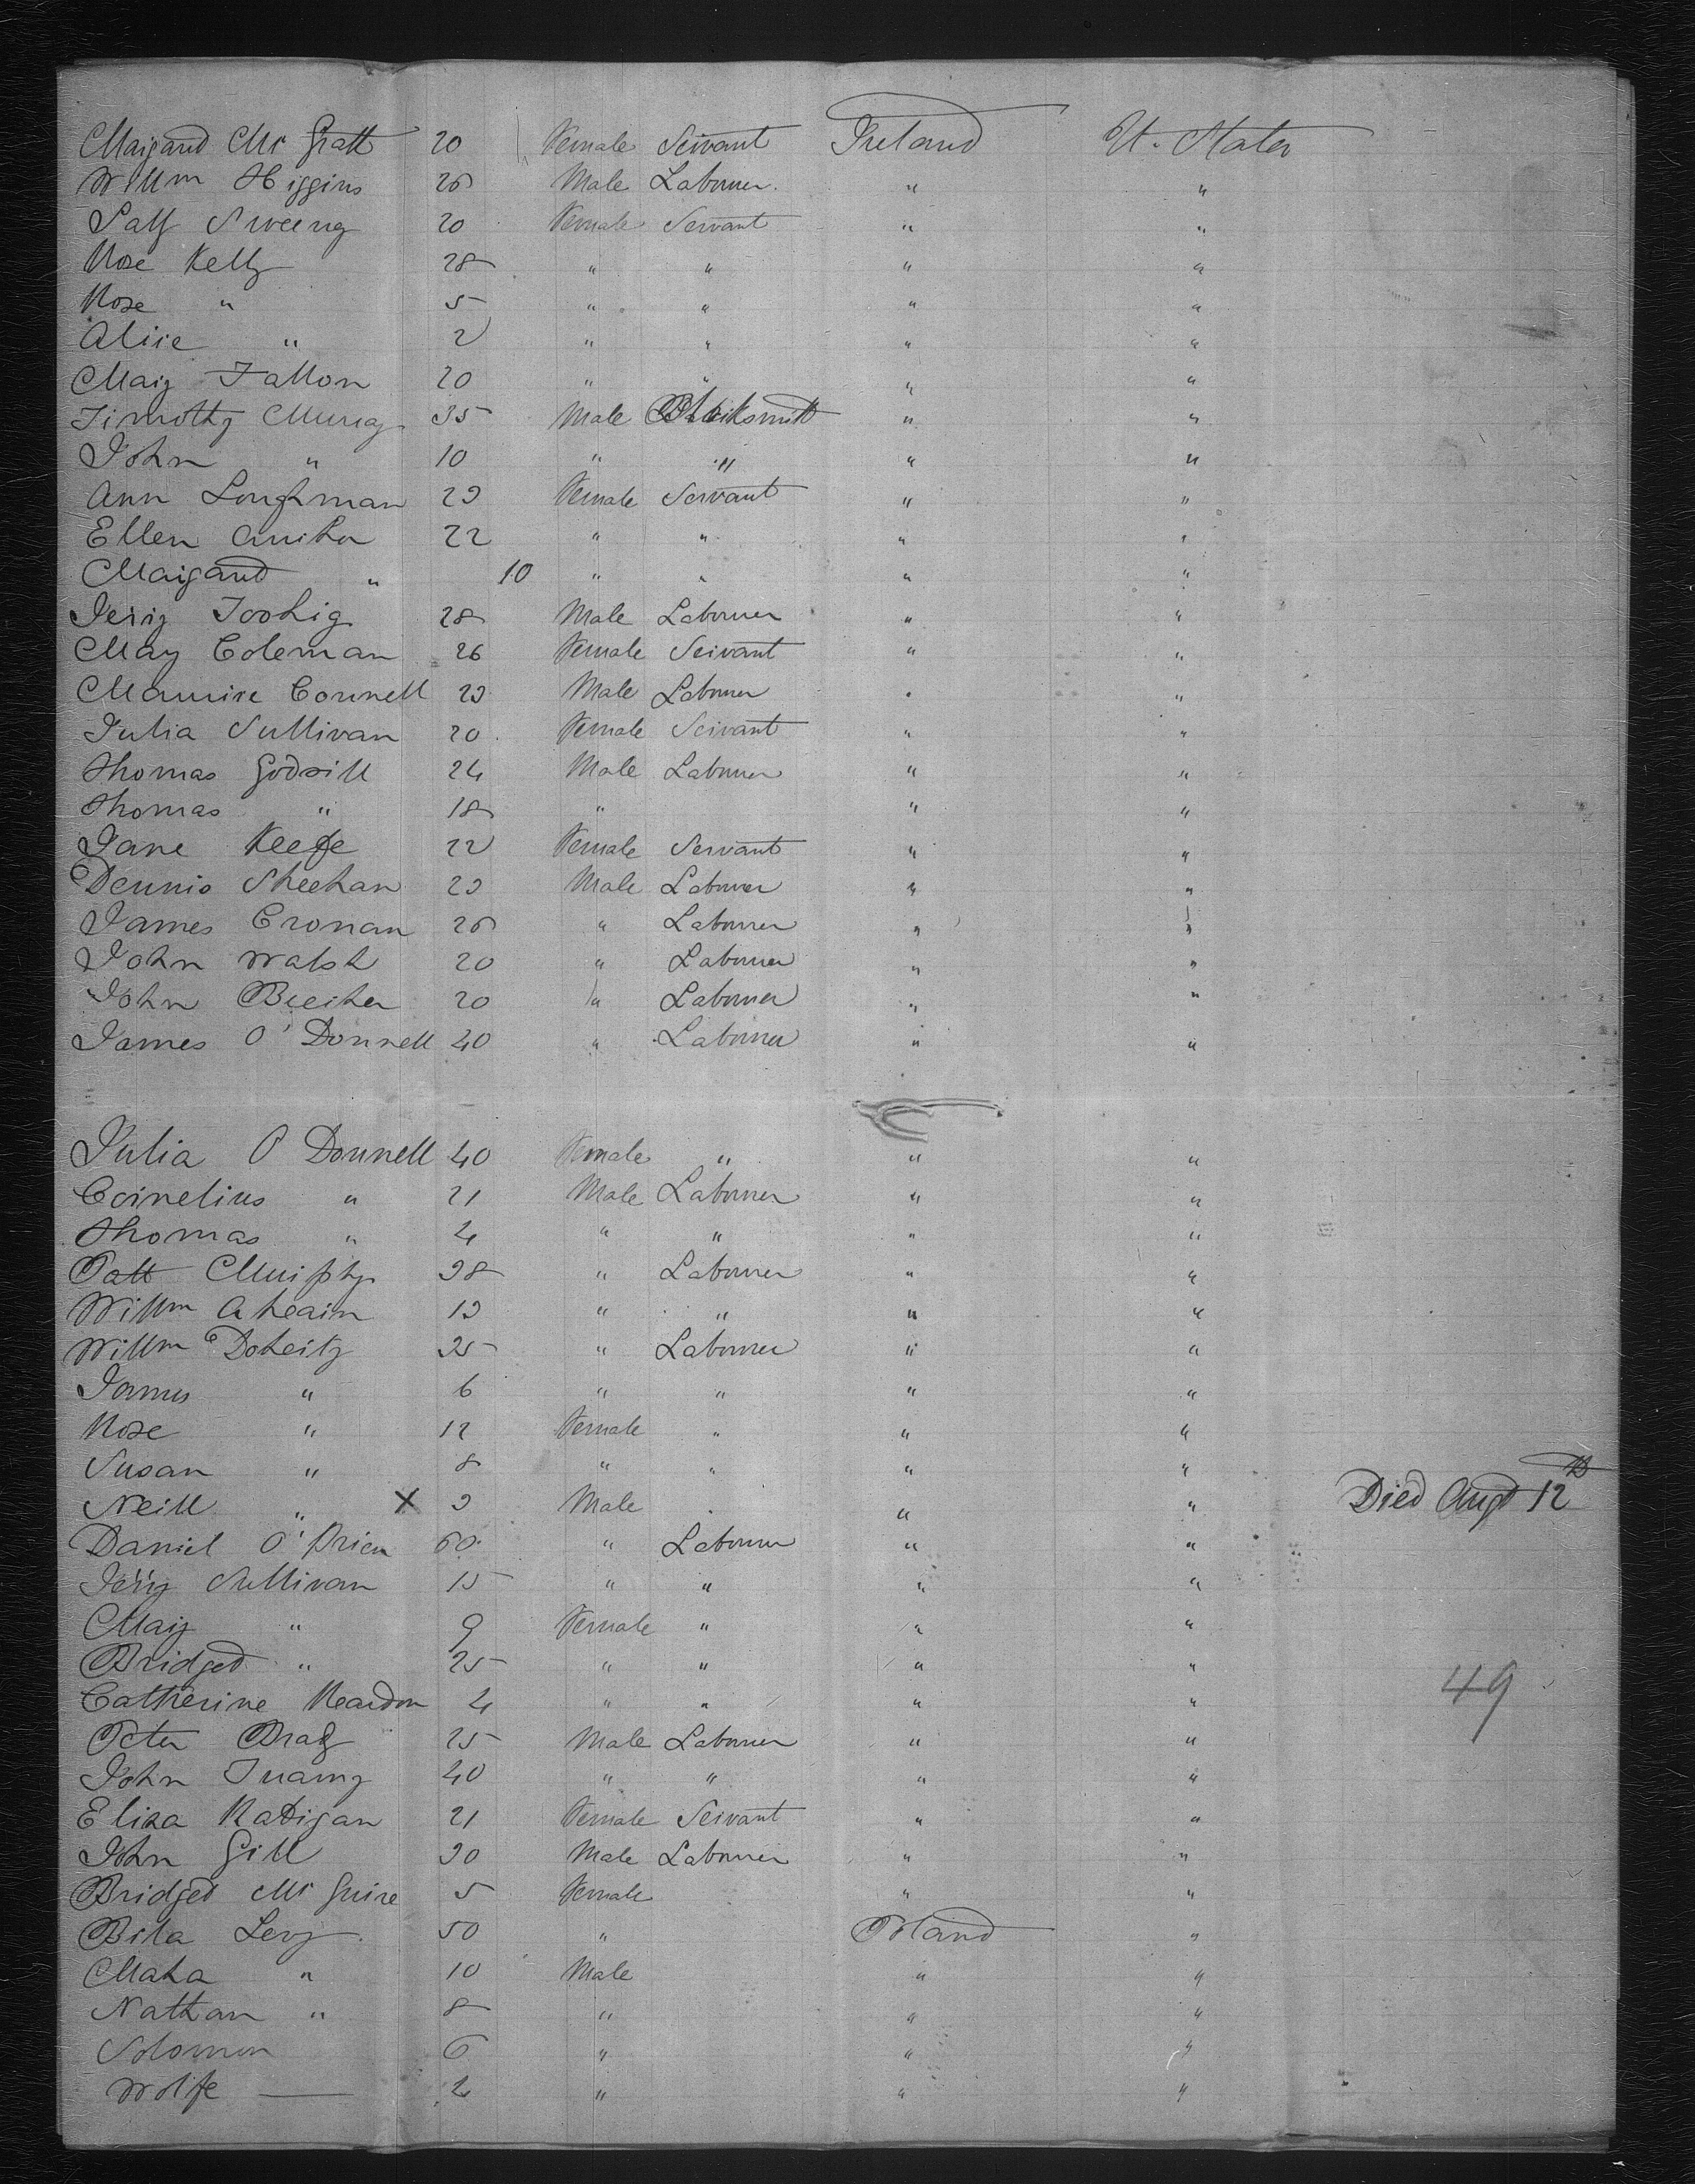 Margaret Mc Gratt 20 Female Servant Ireland U. States
Willm Higgins 25 Male Labourer " "
Patt Sweeny 20 Female Servant " "
Rose Kelly 28 " " " "
Rose " 5 " " " "
Alice " 2 " " " "
Mary Fallon 20 " " " "
Timothy Murray 35 Male Blacksmith " "
John " 10 " " " "
Ann Loughman 23 Female Servant " "
Ellen 22 " " " "
Margaret " 10 " " " "
Jerry Toohig 28 Male Labourer " "
Mary Coleman 26 Female Servant " "
Maurice Connell 23 Male Labourer " "
Julia Sullivan 20 Female Servant " "
Thomas Godsill 24 Male Labourer " "
Thomas " 18 " " "
Jane Keefe 22 Female Servant " "
Dennis Sheehan 23 Male Labourer " "
James Cronan 25 " Labourer " "
John Walsh 20 " Labourer " "
John Beecher 20 " Labourer " "
James O'Donnell 40 " Labourer " "
Julia O Donnell 40 Female " " "
Cornelius " 21 Male Labourer " "
Thomas " 4 " " " "
Patt Murphy 38 " Labourer " "
Willm Ahearn 13 " " " "
Willm Doherty 35 " Labourer " "
James " 6 " " " "
Rose " 12 Female " " "
Susan " 8 " " " "
Neill " X 3 Male " " Died Augt 12th
Daniel O'Brien 60 " Labourer " "
Jerry Sullivan 15 " " " "
Mary " 9 Female " " "
Bridged " 25 " " " "
Catherine Reardon 4 " " " "
49
Peter Brady 25 Male Labourer " "
John 40 " " " "
Eliza Radigan 21 Female Servant " "
John Gill 30 Male Labourer " "
Bridged Mc Guire 5 Female " "
Bila Levy 50 " Poland "
Maha " 10 Male " "
Nathan " 8 " " "
Solomon 6 " " "
Wolfe — 4 " " "